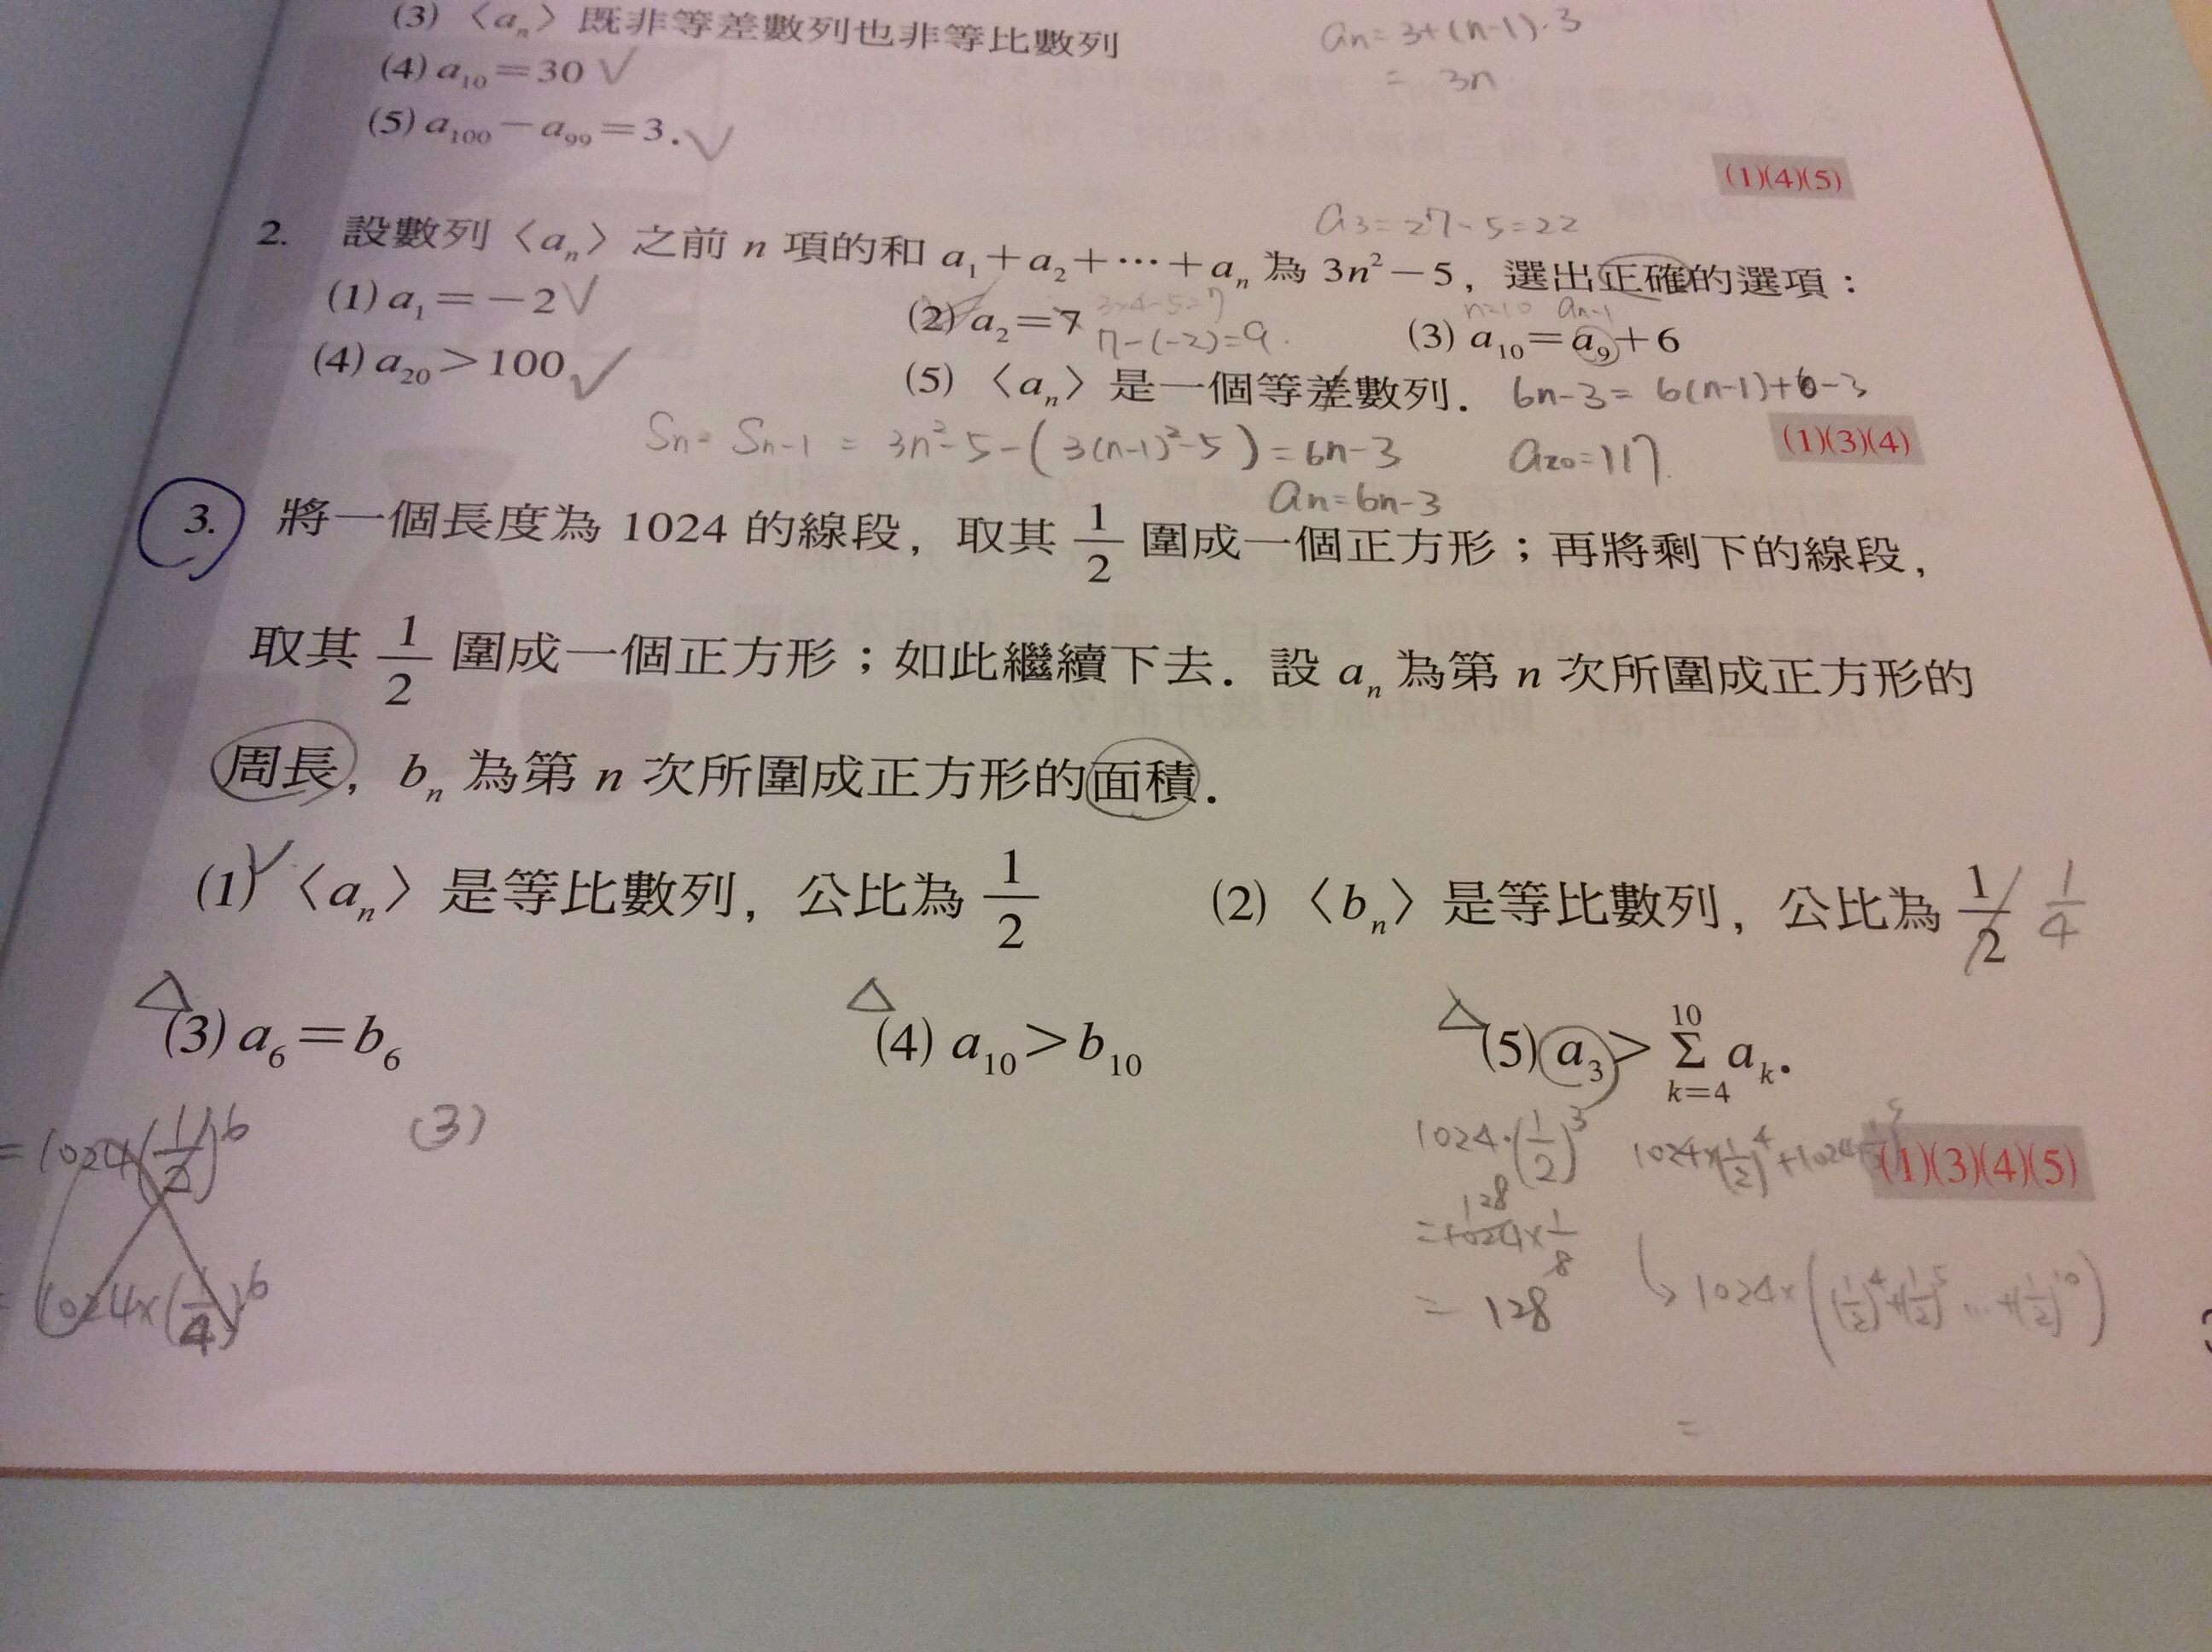 (3)〈aₙ〉既非等差數列也非等比數列
an = 3+(n-1)·3
(4) a₁₀=30 ✓
= 3n
(5) a₁₀₀－a₉₉=3. ✓
(1)(4)(5)
a3 = 27-5=22
2. 設數列〈aₙ〉之前 n 項的和 a₁+a₂+⋯+aₙ 為 3n²－5，選出正確的選項：
(1) a₁=－2 ✓ (2) a₂=7 3×4-5=7 (3) a₁₀=a₉+6
7-(-2)=9. n=10 an-1
(4) a₂₀>100 ✓ (5)〈aₙ〉是一個等差數列. 6n-3= 6(n-1)+6-3
Sn- Sn-1 = 3n²-5-(3(n-1)²-5)=6n-3 a20=117. (1)(3)(4)
an=6n-3
3. 將一個長度為 1024 的線段，取其 1/2 圍成一個正方形；再將剩下的線段，
取其 1/2 圍成一個正方形；如此繼續下去. 設 aₙ 為第 n 次所圍成正方形的
周長，bₙ 為第 n 次所圍成正方形的面積.
(1) ✓〈aₙ〉是等比數列，公比為 1/2 (2)〈bₙ〉是等比數列，公比為 1/2 1/4
△(3) a₆=b₆ △(4) a₁₀>b₁₀ △(5) a₃> 10 Σ k=4 aₖ.
=1024(1/2)⁶ (3) 1024·(1/2)³ 1024×(1/2)⁴+1024 (1)(3)(4)(5)
=1024×1/8 128
1024×(1/4)⁶ = 128 ↳ 1024×((1/2)⁴+(1/2)⁵...+(1/2)¹⁰)
=